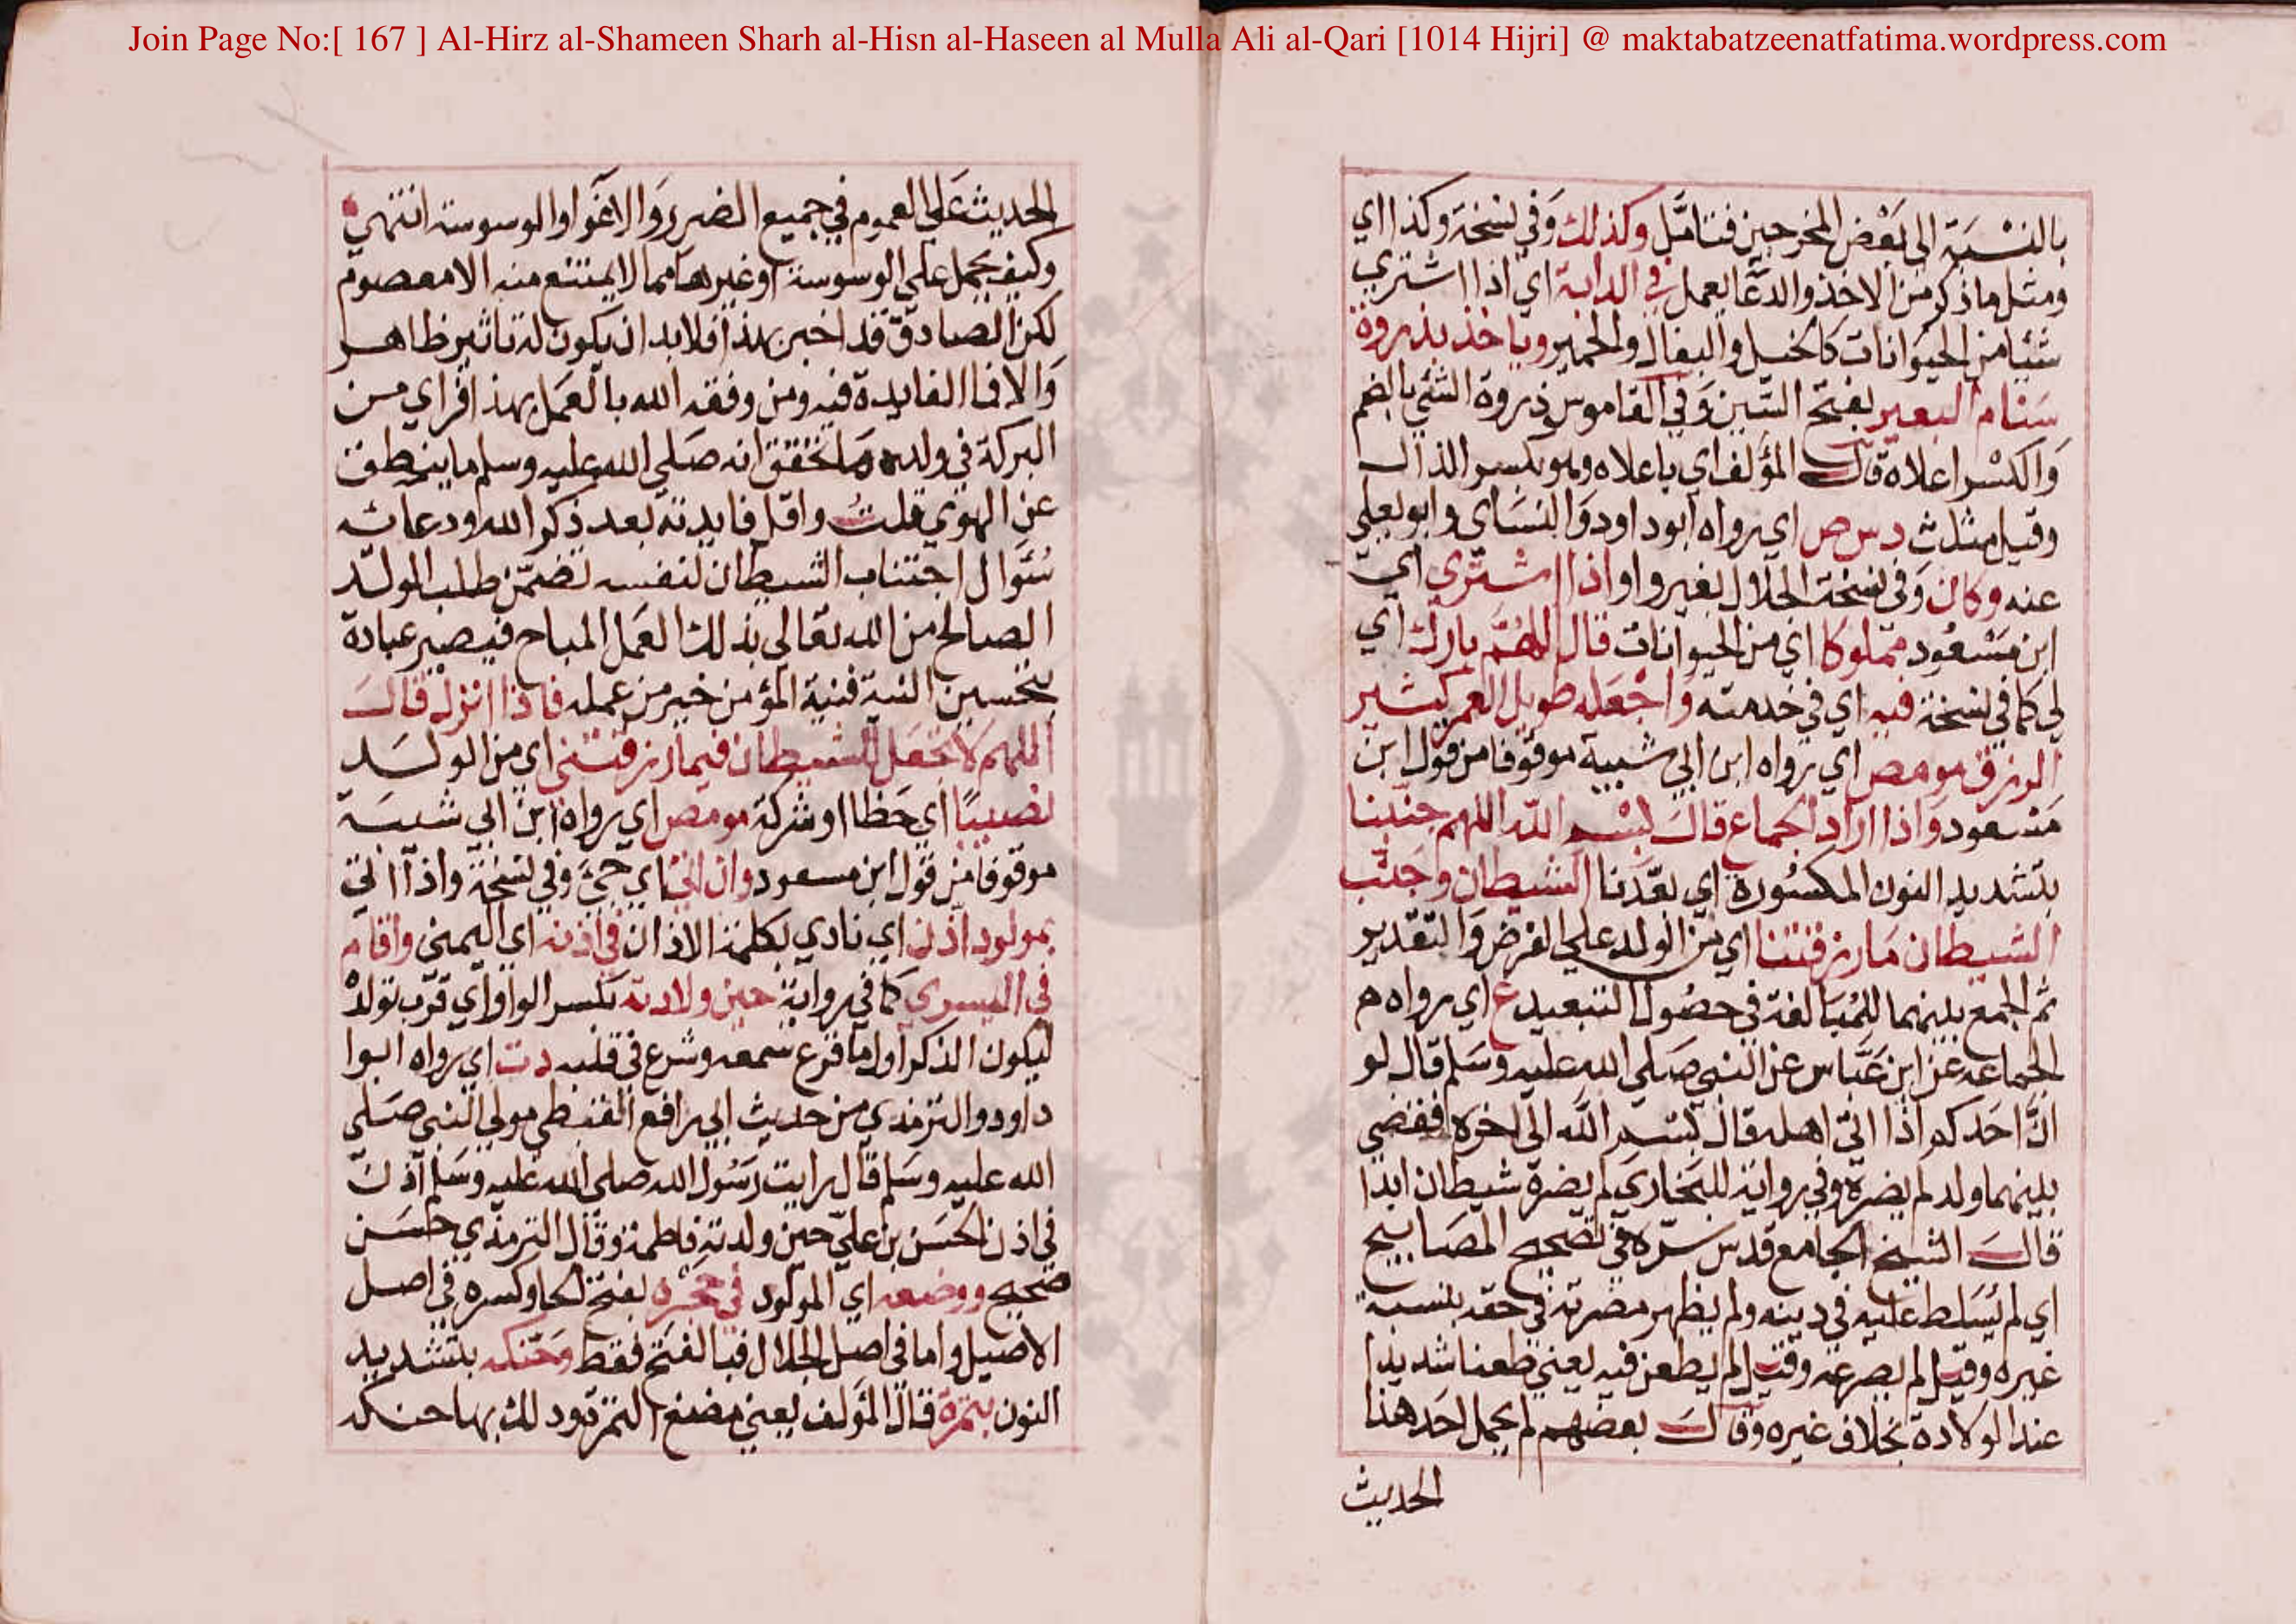 Join Page No:[ 167 ] Al-Hirz al-Shameen Sharh al-Hisn al-Haseen al Mulla Ali al-Qari [1014 Hijri] @ maktabatzeenatfatima.wordpress.com
بالنسبة الى بعض المخرجين فتامل وكذلك وفي نسخة وكذا اي
ومثل ما ذكر من الاخذ والدعا يعمل في الدابة اي اذا اشتري
شيئا من الحيوانات كالخيل والبغال والحمير وياخذ بذروة
سنام البعير بفتح السين وفي القاموس ذروة الشئ بالضم
والكسر اعلاه قال المؤلف اي باعلاه وهو بكسر الذال
وقيل مثلث د س ص اي رواه ابو داود والنساي وابو يعلي
عنه وكان وفي نسخة الجلال بغير واو اذا اشتري اي
ابن مسعود مملوكا اي من الحيوانات قال اللهم بارك اي
لي كما في نسخة فيه اي في خدمته واجعله طويل العمر كثير
الرزق مومص اي رواه ابن ابي شيبة موقوفا من قول ابن
مسعود واذا اراد الجماع قال بسم الله اللهم جنبنا
بتشديد النون المكسورة اي بعدنا الشيطان وجنب
الشيطان ما رزقتنا اي من الولد علي الفرض والتقدير
ثم الجمع بينهما للمبالغة في حصول التبعيد ع اي رواه م
الجماعه عن ابن عباس عن النبي صلي الله عليه وسلم قال لو
ان احدكم اذا اتي اهله قال بسم الله الي اخره فقضي
بينهما ولد لم يضره وفي رواية للبخاري لم يضره شيطان ابدا
قال الشيخ الجامع قدس سره في تصحيح المصابيح
اي لم يسلط عليه في دينه ولم يظهر مضرته في حقه بنسبة
غيره وقيل لم يصرعه وقيل لم يطعن فيه يعني طعنا شديدا
عند الولادة بخلاف غيره وقال بعضهم لم يحمل احد هذا
الحديث
الحديث علي العموم في جميع الضرر والاغوا والوسوسة انتهي
وكيف يحمل علي الوسوسة او غيرها مما لا يمتنع منه الا معصوم
لكن الصادق قد اخبر بهذا فلا بد ان يكون له تاثير ظاهر
والا فما الفايدة فيه ومن وفقه الله بالعمل بهذا فراي من
البركة في ولده ما تحقق انه صلي الله عليه وسلم ما ينطق
عن الهوي قلت واقل فايدته بعد ذكر الله ودعائه
سؤال اجتناب الشيطان لنفسه تضمن طلب الولد
الصالح من الله تعالي بذلك العمل المباح فيصير عبادة
بتحسين النية فنية المؤمن خير من عمله فاذا انزل قال
اللهم لا تجعل للشيطان فيما رزقتني اي من الولد
نصيبا اي حظا او شركة مومص اي رواه ابن ابي شيبة
موقوفا من قول ابن مسعود وان اتي اي جئ وفي نسخة واذا اتي
بمولود اذن اي نادي بكلمة الاذان في اذنه اي اليمني واقام
في اليسري كما في رواية حين ولادته بكسر الواو اي قرب تولده
ليكون الذكر اول ما قرع سمعه وشرع في قلبه د ت اي رواه ابوا
داود والترمذي من حديث ابي رافع القبطي مولي النبي صلي
الله عليه وسلم قال رايت رسول الله صلي الله عليه وسلم اذن
في اذن الحسن بن علي حين ولدته فاطمة وقال الترمذي حسن
صحيح ووضعه اي المولود في حجره بفتح الحا وكسره في اصل
الاصيل واما في اصل الجلال فبالفتح فقط وحنكه بتشديد
النون بتمرة قال المؤلف يعني مضغ التمر ودلك بها حنكه